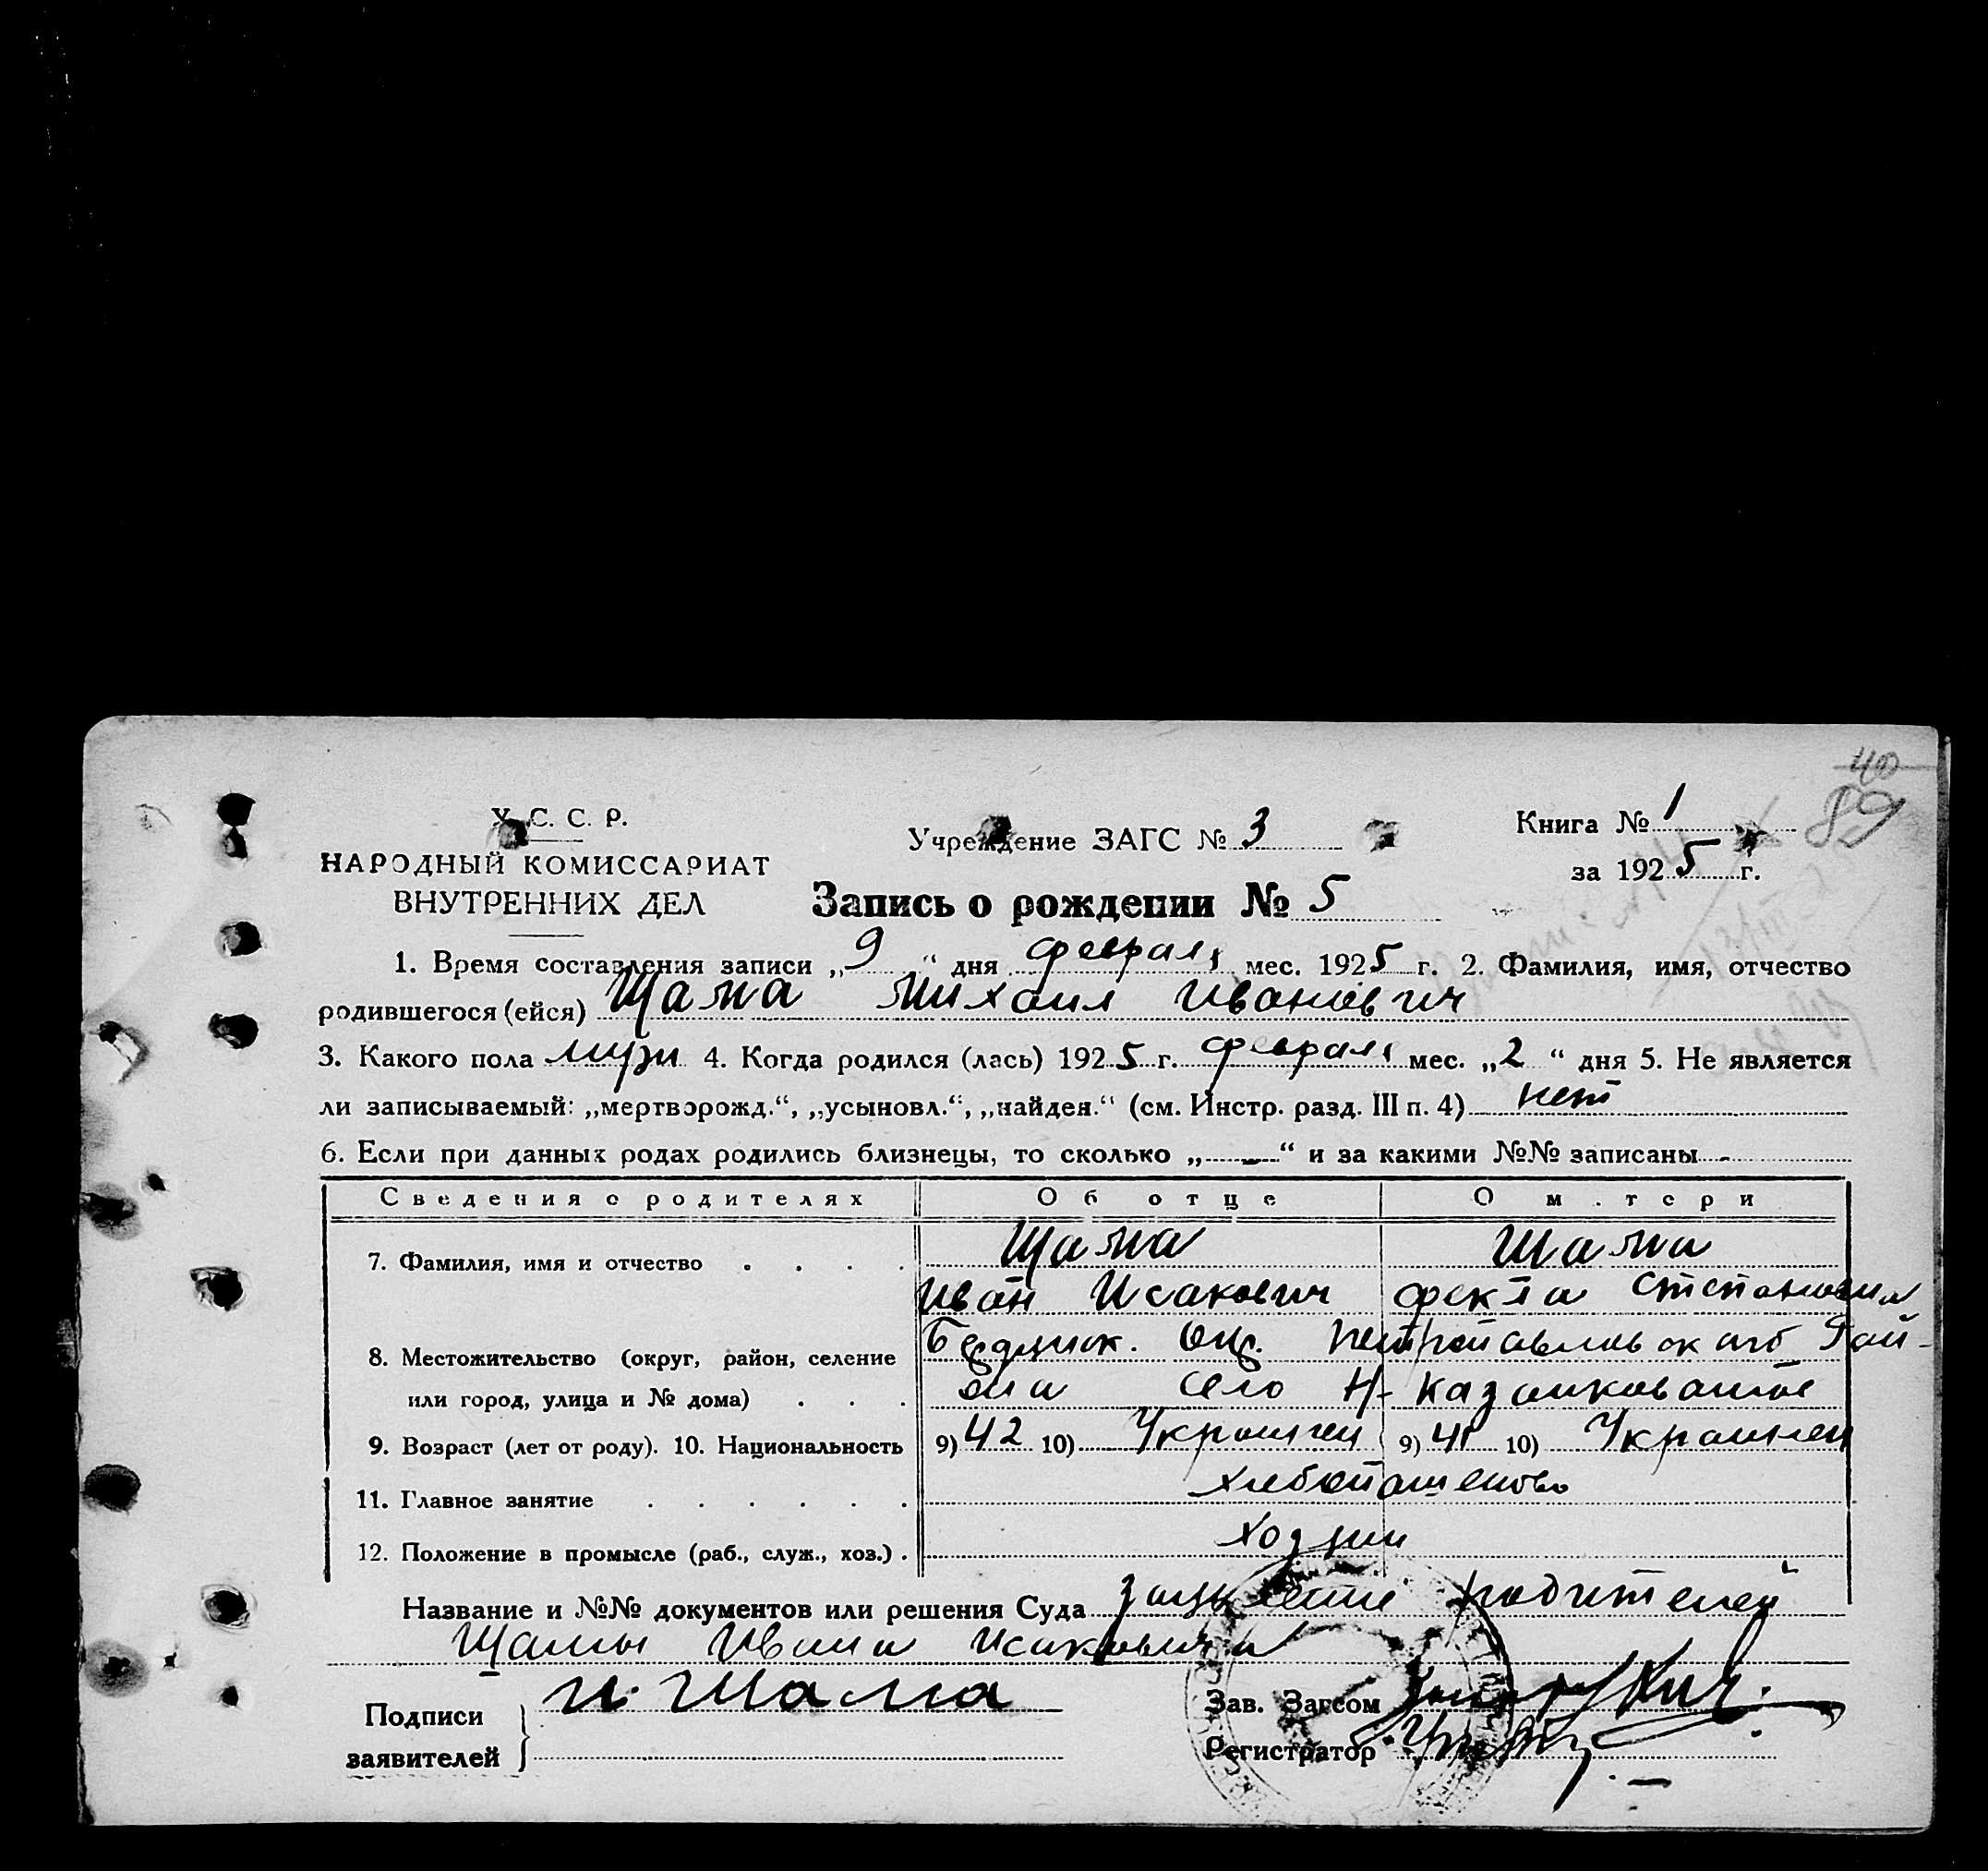 40
89
У. С. С. Р.
НАРОДНЫЙ КОМИССАРИАТ
ВНУТРЕННИХ ДЕЛ
Учреждение ЗАГС № 3
Книга № 1
за 1925 г.
Запись о рождении № 5
1. Время составления записи „9“ дня февраля мес. 1925 г. 2. Фамилия, имя, отчество
родившегося (ейся) Шама Михаил Иванович
3. Какого пола муж 4. Когда родился (лась) 1925 г. февраля мес. „2“ дня 5. Не является
ли записываемый: „мертворожд.“, „усыновл.“, „найден.“ (см. Инстр. разд. III п. 4) нет
6. Если при данных родах родились близнецы, то сколько „—“ и за какими №№ записаны -
Сведения о родителях Об отце О м.тери
7. Фамилия, имя и отчество . . . . Шама Шама
Иван Исакович Фекла Степановна
8. Местожительство (округ, район, селение Бердянск. Окр. Рай-
или город, улица и № дома) . . . она село Н-
9. Возраст (лет от роду). 10. Национальность 9) 42 10) Украинец 9) 41 10) Украинец
11. Главное занятие . . . . . . хлебопашество
12. Положение в промысле (раб., служ., хоз.) . хозяин
Название и №№ документов или решения Суда родителей
Шамы Ивана Исаковича
Подписи
заявителей
И. Шама
Зав. Загсом
Регистратор